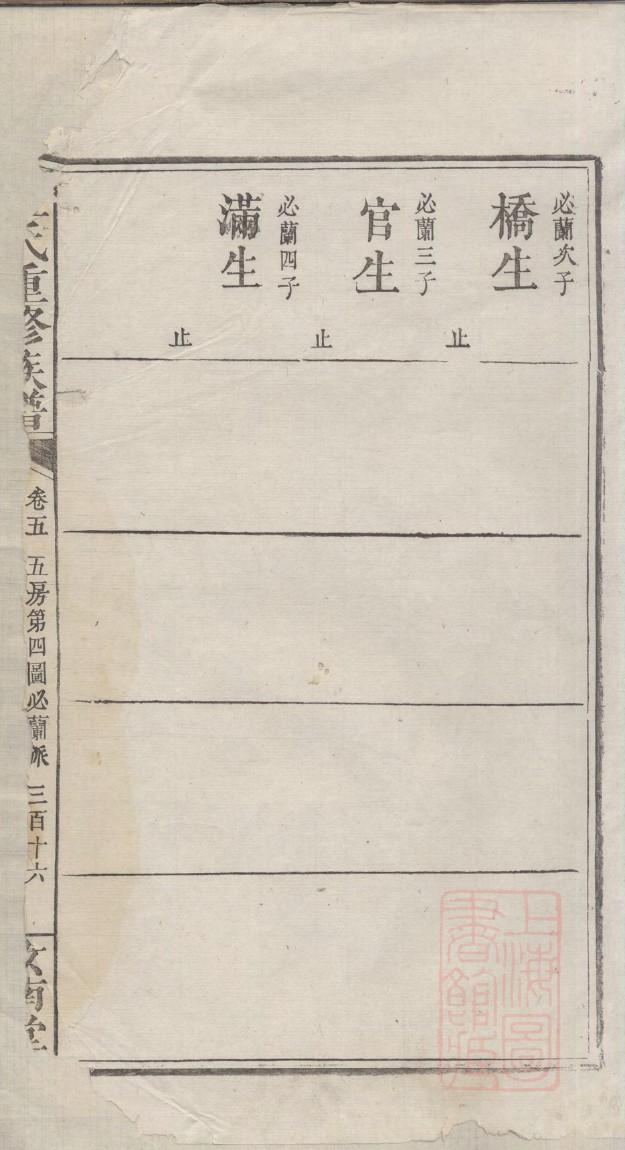 必蘭次子
橋生
止
必蘭三子
官生
止
必蘭四子
滿生
止
氏重修族譜
卷五 五房第四圖必蘭派 三百十六
堂
上海圖
書館藏